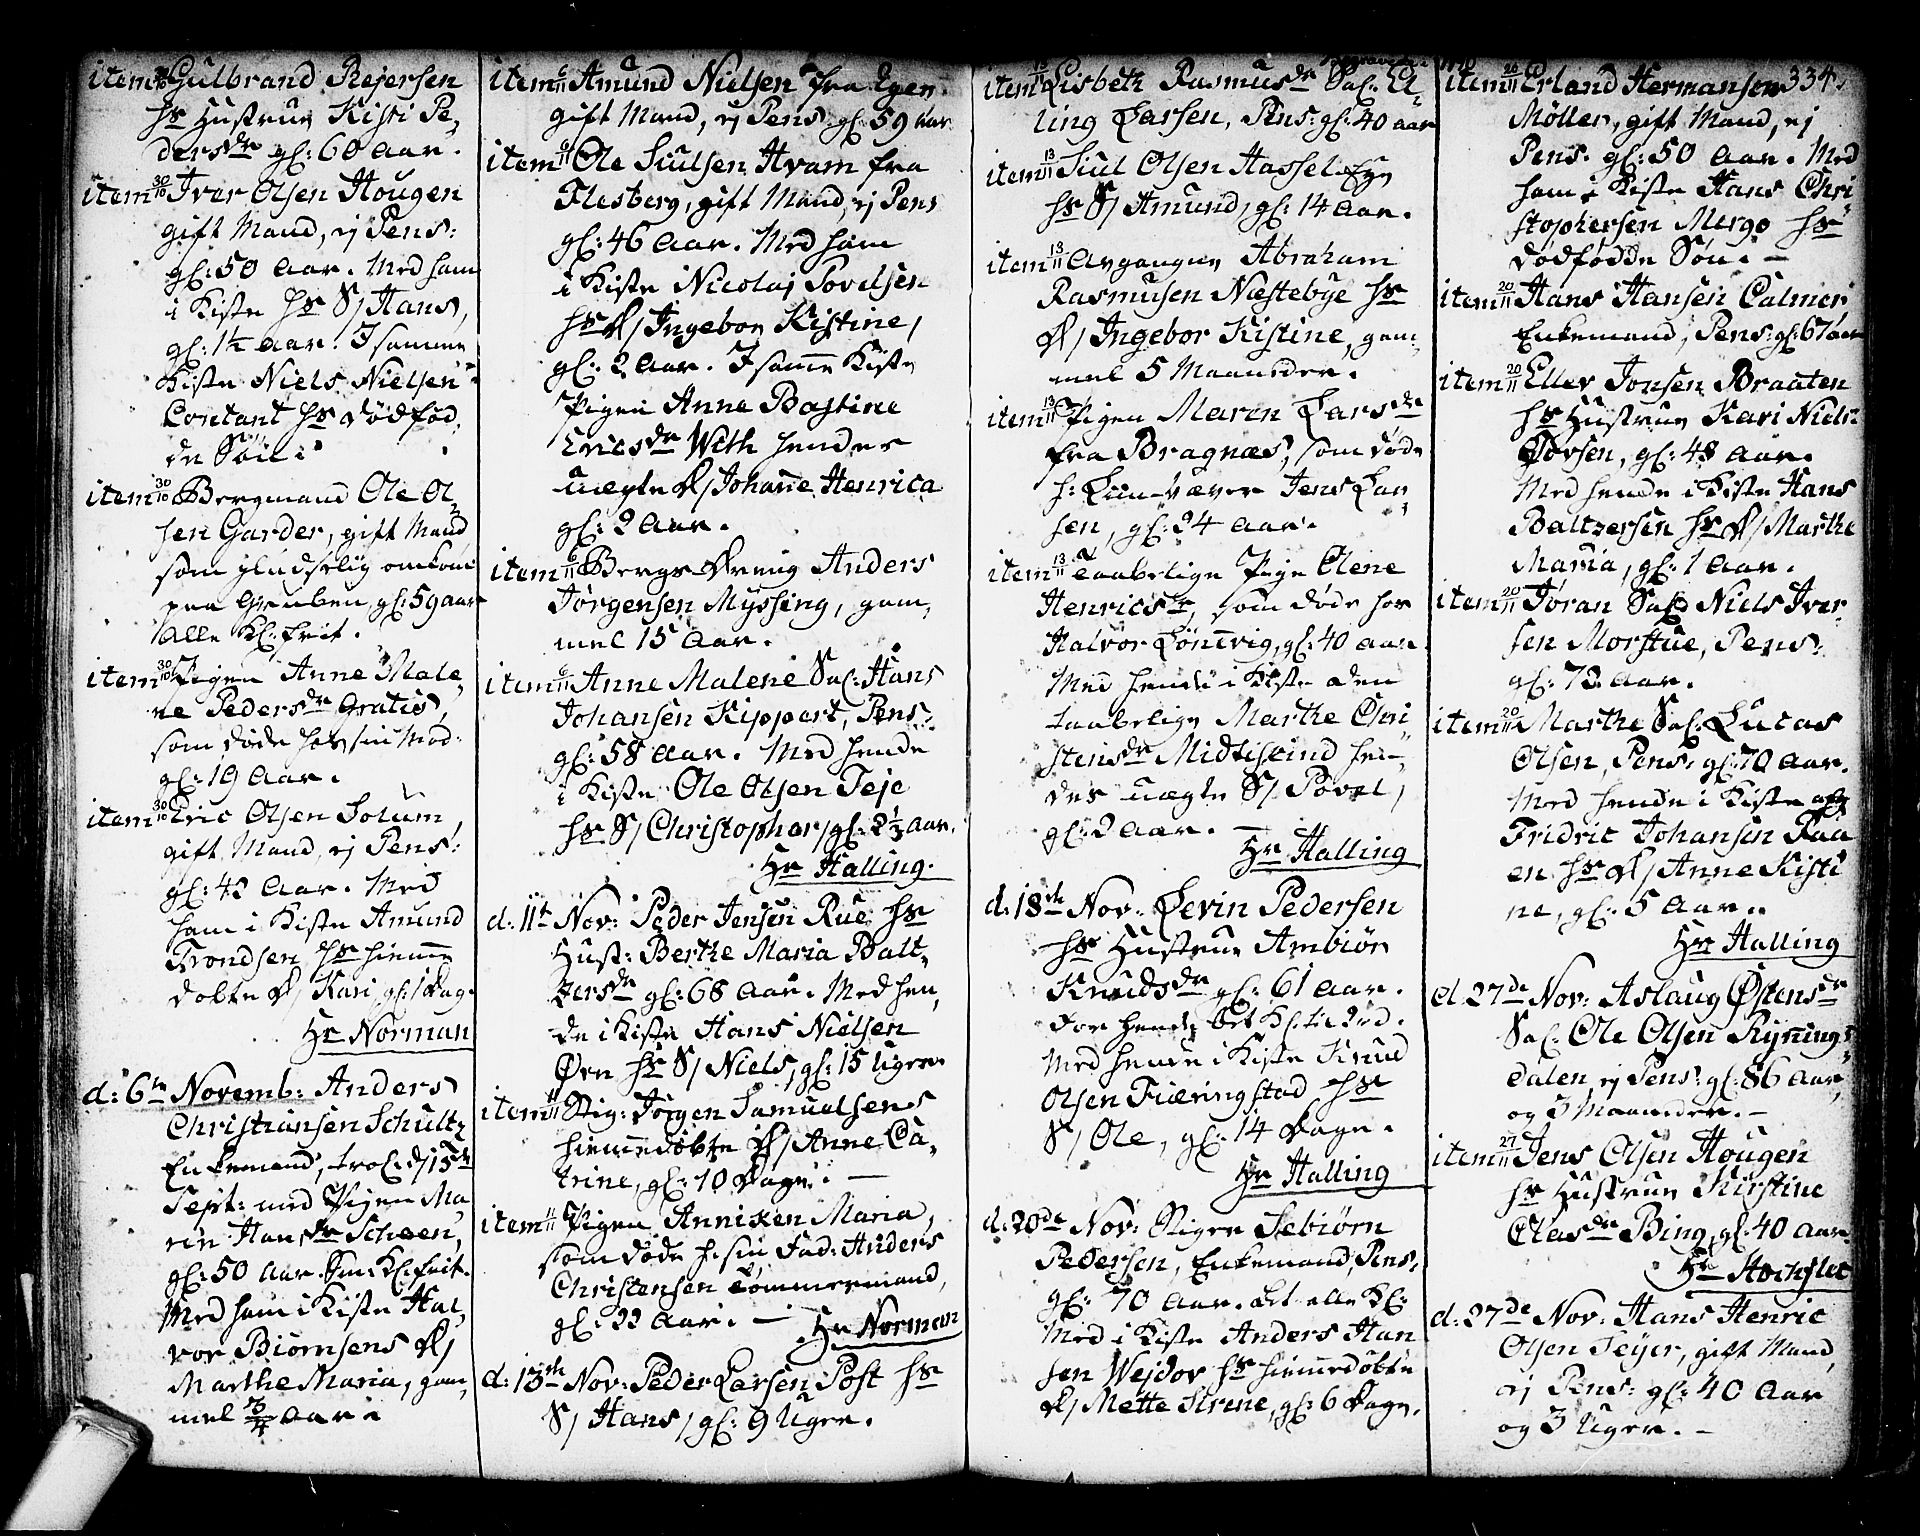 item 30/10 Gulbrand Rejersen
hs Hustrue Kisti Pe,
dersdr gl: 60 Aar.
item 30/10 Iver Olsen Hougen
gift Mand, ej Pens:
gl: 50 Aar. Med ham
i Kiste hs S/ Hans,
gl: 1½ Aar. I samme
Kiste Niels Nielsen
Contant hs dødfød,
de Søn:
item 30/10 Bergmand Ole Ol,
sen Garder, gift Mand
som pludselig omkom
paa Gruben, gl: 59 aar
Alle Kl: frit.
item 30/10 Pigen Anne Male,
ne Pedersdr Gratis,
som døde hos sin Mod:
gl: 19 Aar.
item 30/10 Eric Olsen Solum,
gift Mand, ej Pens:
gl: 42 Aar. Med
ham i Kiste Amund
Trondsen hs hieme
døbte D/ Kari, gl: 1 Dag.
Hr Norman
d: 6te Novemb: Anders
Christiansen Schultz
Enkemand, trol: d/ 15de
Sept: med Pigen Ma,
ren Hansdr Schoen,
gl: 50 Aar. Sm: Kl: frit.
Med ham i Kiste Hal,
vor Biørnsens D/
Marthe Maria, gam,
mel 3/4 Aar.
item 6/11 Amund Nielsen fra Egen.
gift Mand, ej Pens: gl: 59 Aar
item 6/11 Ole Siulsen Hvam fra
Flesberg, gift Mand, ej Pens
gl: 46 Aar. Med ham
i Kiste Nicolaj Povelsen
hs D/ Ingebor Kistine,
gl: 2 Aar. I same Kiste
Pigen Anne Bastine
Ericsdr With hendes
uægte D/ Johane Henrica
gl: 2 Aar.
item 6/11 Bergs Dreng Anders
Jørgensen Myssing, gam,
mel 15 Aar.
item 6/11 Anne Malene Sal: Hans
Johansen Kippert, Pens:
gl: 58 Aar. Med hende
i Kiste Ole Olsen Teje
hs S/ Christopher, gl: 2½ Aar.
Hr Halling.
d: 11te Nov: Peder Jensen Rue hs
Hust: Berthe Maria Balt,
zersdr gl: 68 Aar. Med hen,
de i Kiste Hans Nielsen
Øen hs S/ Niels, gl: 15 Uger.
item 11/11 Stig: Jørgen Samuelsens
hiemmedøbte D/ Anne Ca,
trine, gl: 10 Dage. —
item 11/11 Pigen Annixen Maria,
som døde h: sin Fad: Anders
Christensen Tømmermand,
gl: 22 Aar. —
Hr Norman
d: 13de Nov: Peder Larsen Post hs
S/ Hans, gl: 9 Uger.
item 13/11 Lisbeth Rasmusdr Sal: El,
ling Larsen, Pens: gl: 40 aar
item 13/11 Siul Olsen Hassel Eye
hs S/ Amund, gl: 14 Aar.
item 13/11 Avgangne Abraham
Rasmusen Næstebye hs
D/ Ingebor Kistine, gam,
mel 5 Maaneder.
item 13/11 Pigen Maren Larsdr
fra Bragnæs, som døde
h: Liinvæver Jens Lar,
sen, gl: 24 Aar.
item 13/11 Taabelige Pige Olene
Henricsdr, som døde hos
Halvor Lønvig, gl: 40 aar.
Med hende i Kiste den
taabelige Marthe Chri,
stensdr Midtistind hen,
des uægte S/ Povel,
gl: 2 Aar. —
Hr Halling
d: 18de Nov: Levin Pedersen
hs Hustrue Ambiør
Knudsdr gl: 61 Aar.
For hende bet Kl: til Død.
Med hende i Kiste Knud
Olsen Fiæringstad hs
S/ Ole, gl: 14 Dage.
Hr Halling
d: 20de Nov: Stiger Sebiørn
Pedersen, Enkemand, Pens,
gl: 70 Aar. bet alle Kl:
Med i Kiste Anders Han
sen Wejdor hs hiemmedøbte
D/ Mette Sirene, gl: 6 Dage.
334.
item 20/11 Erland Hermansen
Møller, gift Mand, ej
Pens: gl: 50 Aar. Med
ham i Kiste Hans Chri
stophersen Mergo hs
dødfødde Søn. —
item 20/11 Hans Hansen Calmer
Enkemand, Pens: gl: 67 aar
item 20/11 Eller Jonsen Braaten
hs Hustrue Kari Niels
Torsen, gl: 48 Aar.
Med hende i Kiste Hans
Baltzersen hs D/ Marthe
Maria, gl: 1 Aar.
item 20/11 Jøran Sal: Niels Iver
sen Morstue, Pens:
gl: 72 Aar.
item 20/11 Marthe Sal: Lucas
Olsen, Pens: gl: 70 Aar.
Med hende i Kiste afg
Fridric Johansen Raa
en hs D/ Anne Kisti
ne, gl: 5 Aar.
Hr Halling
d. 27de Nov: Aslaug Østensdr
Sal: Ole Olsen Ryning,
dalen ej Pens: gl: 86 Aar,
og 3 Maaneder. —
item 27/11 Jens Olsen Hougen
hs Hustrue Kirstine
Olasdr Bing, gl: 40 Aar.
Hr
d: 27de Nov: Hans Henric
Olsen Teyer, gift Mand,
ej Pens: gl: 40 Aar
og 3 Uger. —